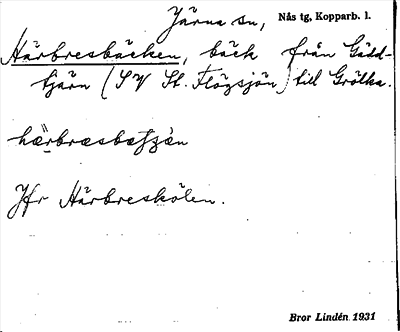 Järna sn, Nås tg, Kopparb. l.
Härbresbäcken, bäck från Gädd-
tjärn (SV St. Flögsjön) till Grölka.
Jfr Härbreskölen.
Bror Lindén 1931